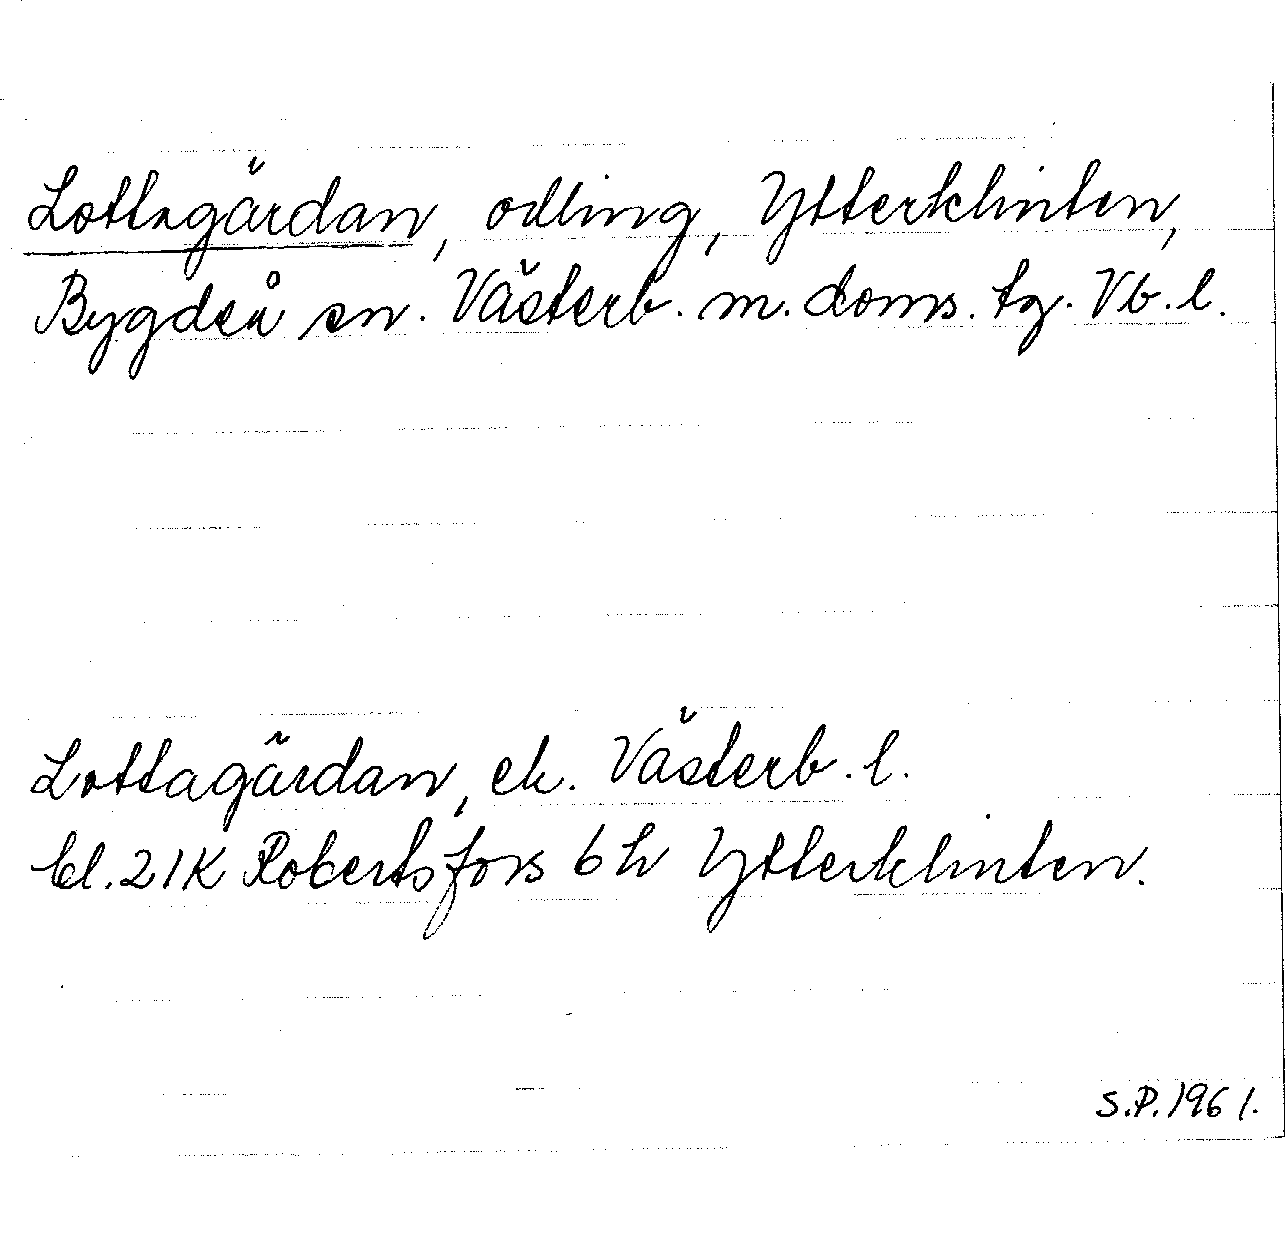 Lottagärdan, odling, Ytterklinten,
Bygdeå sn. Västerb. m. doms. tg. Vb. l.
Lottagärdan, ek. Västerb. l.
bl. 21K Robertsfors 6 h Ytterklinten.
S.P. 1961.